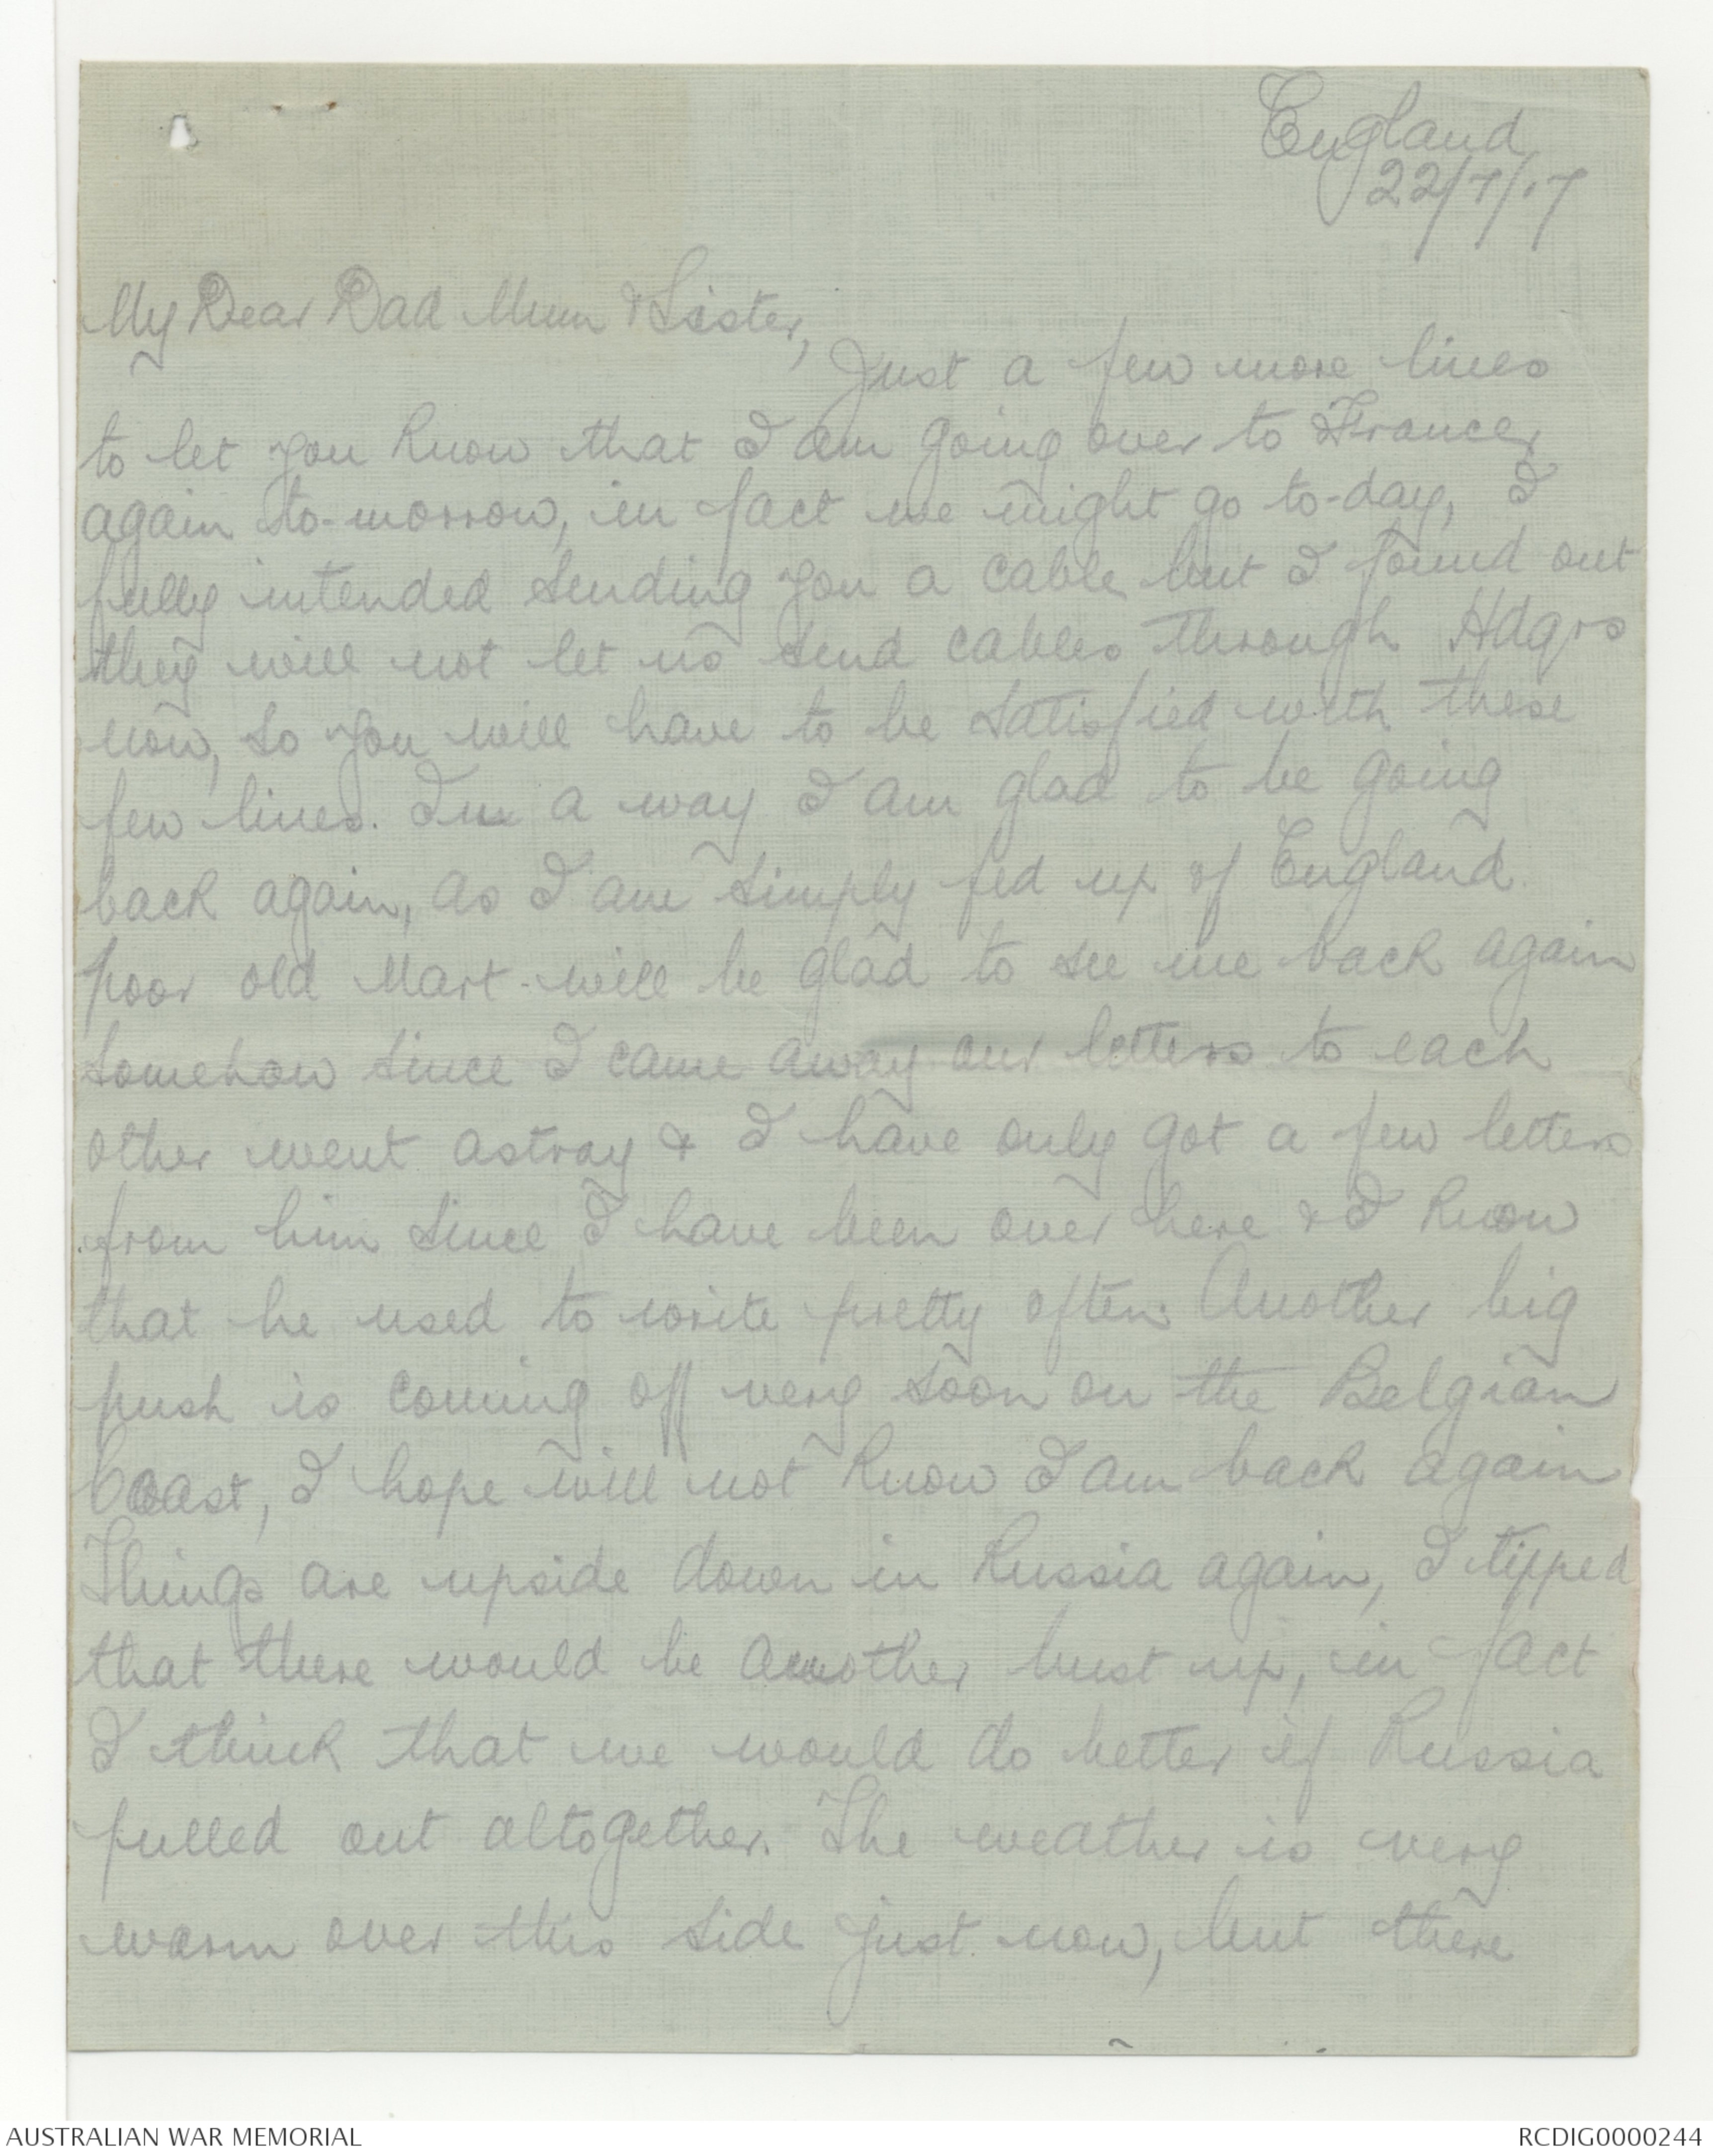 England
22/7/17
My Dear Dad Mum & Sister,
Just a few more lines
to let you know that I am going over to France,
again to-morrow, in fact we might go to-day, I
fully intended sending you a cable but I found out
they will not let us send cables through Hdqrs
now, so you will have to be satisfied with these
few lines. In a way I am glad to be going
back again, as I am simply fed up of England
poor old Mart will be glad to see me back again
somehow since I came away our letters to each
other went astray & I have only got a few letters
from him since I have been over here & I know
that he used to write pretty often. Another big
push is coming off very soon on the Belgian
Coast, I hope will not know I am back again
Things are upside down in Russia again, I tipped
that there would be another bust up, in fact
I think that we would do better if Russia
pulled out altogether. The weather is very
warm over this side just now, but there
AUSTRALIAN WAR MEMORIAL
RCDIG0000244